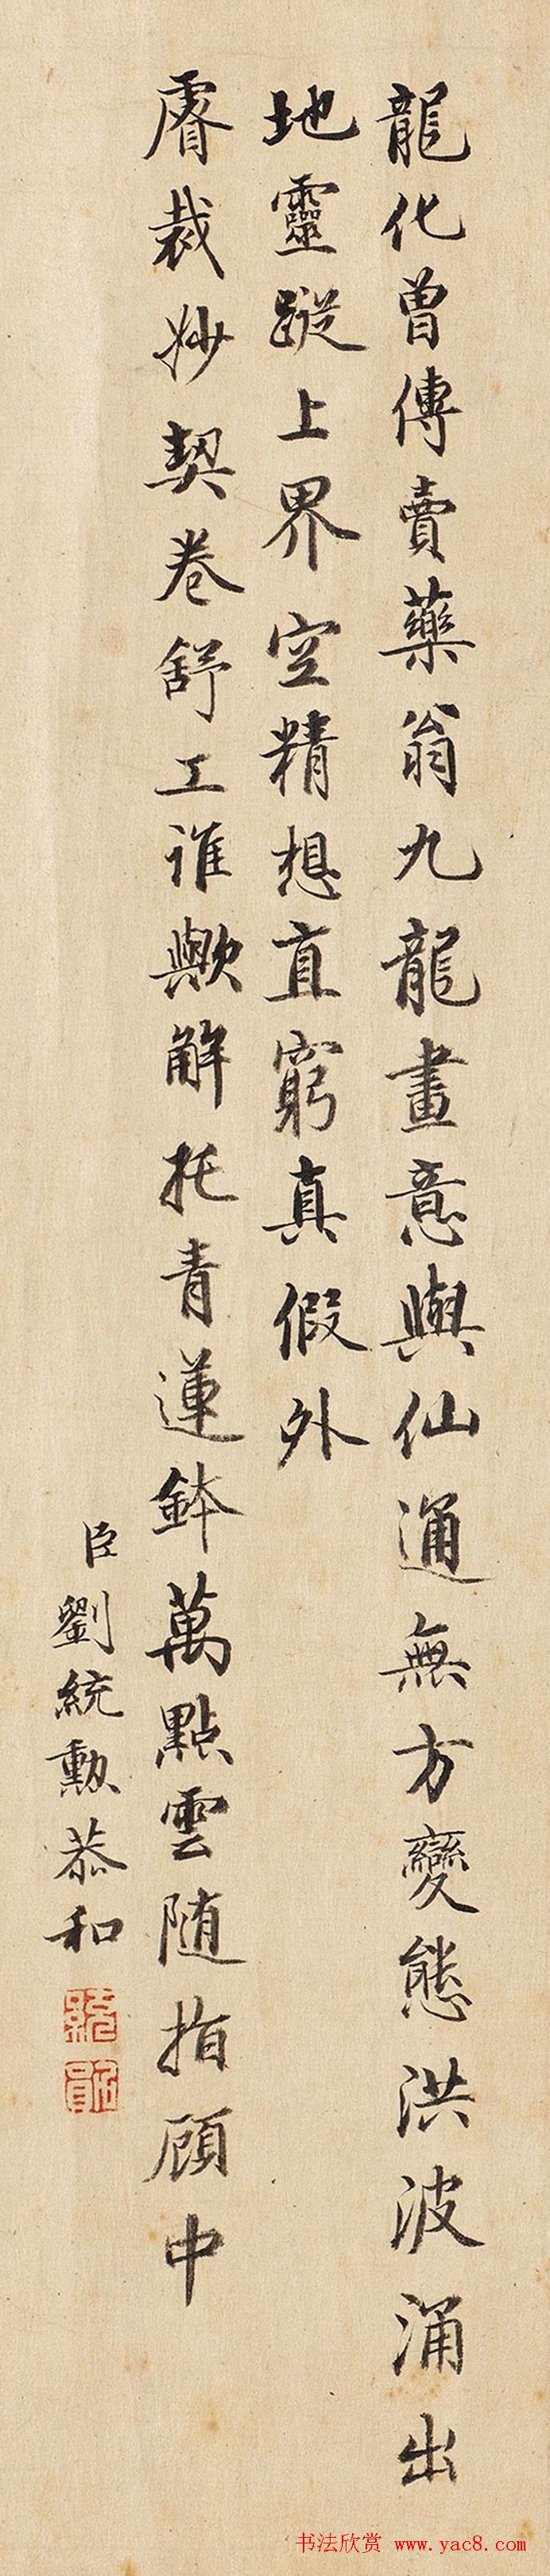 龍化曾傳賣藥翁九龍畫意與仙通無方變態洪波涌出
地靈蹤上界空精想直窮真假外
睿裁妙契卷舒工誰歟解托青蓮鉢萬點雲随指顧中
臣劉統勳恭和
书法欣赏 www.yac8.com